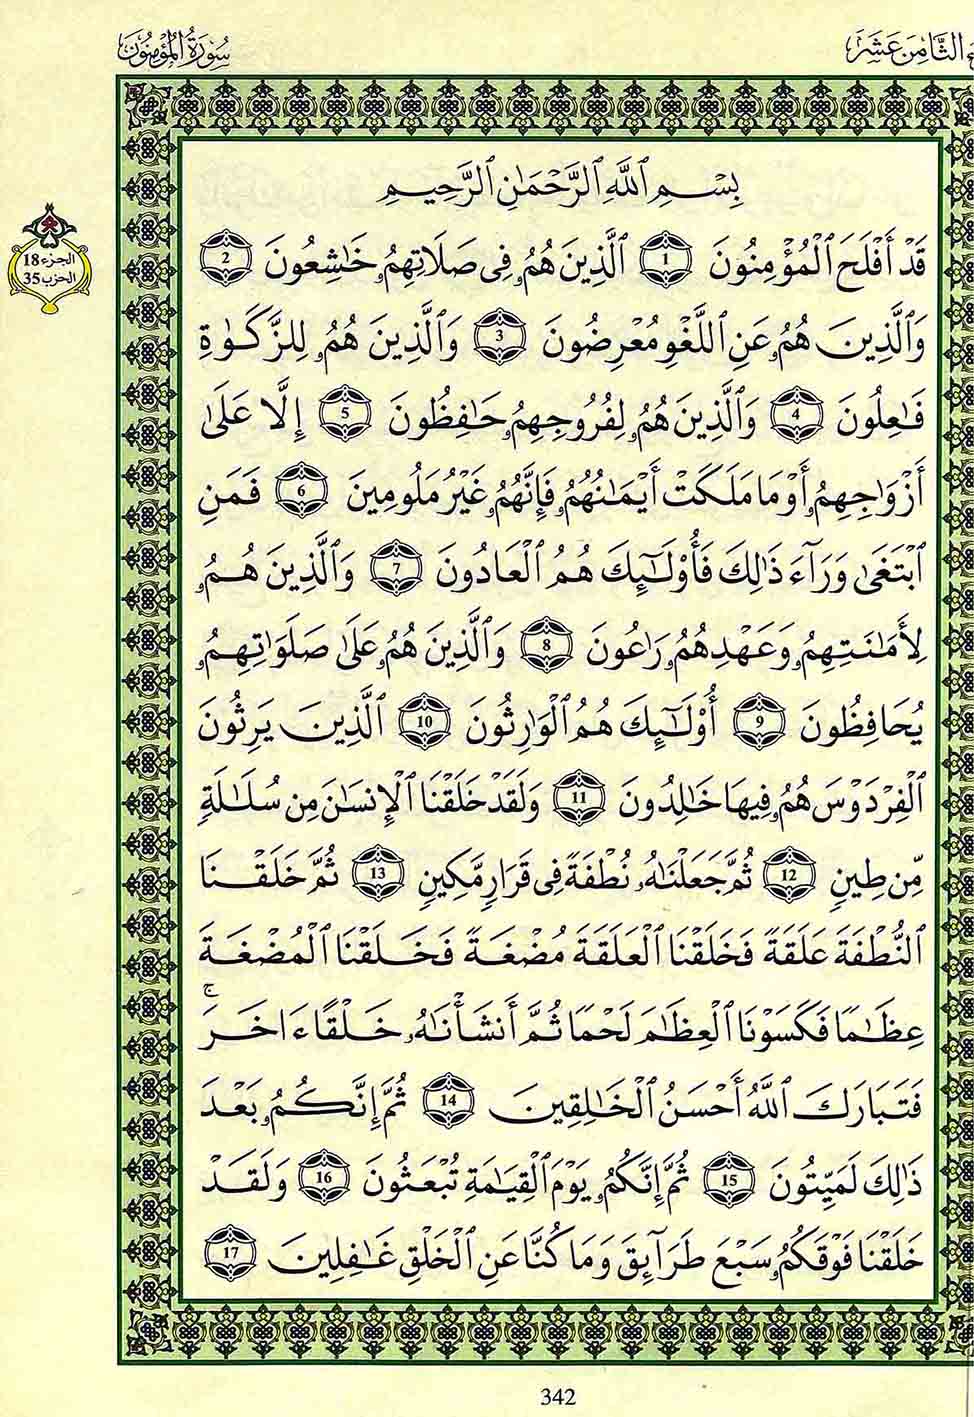 الثَّامِنَ عَشَرَ
سُورَةُ المُؤْمِنُونَ
الجزء 18
الحزب 35
بِسْمِ اِ۬للَّهِ اِ۬لرَّحْمَٰنِ اِ۬لرَّحِيمِ
قَدْ أَفْلَحَ اَ۬لْمُؤْمِنُونَ 1 اَ۬لَّذِينَ هُمُۥ فِى صَلَاتِهِمُۥ خَٰشِعُونَ 2
وَالَّذِينَ هُمُۥ عَنِ اِ۬للَّغْوِ مُعْرِضُونَ 3 وَالَّذِينَ هُمُۥ لِلزَّكَوٰةِ
فَٰعِلُونَ 4 وَالَّذِينَ هُمُۥ لِفُرُوجِهِمُۥ حَٰفِظُونَ 5 إِلَّا عَلَىٰ
أَزْوَٰجِهِمُۥ أَوْ مَا مَلَكَتْ أَيْمَٰنُهُمُۥ فَإِنَّهُمُۥ غَيْرُ مَلُومِينَ 6 فَمَنِ
اِ۪بْتَغَىٰ وَرَآءَ ذَٰلِكَ فَأُوْلَٰٓئِكَ هُمُ اُ۬لْعَادُونَ 7 وَالَّذِينَ هُمُۥ
لِأَمَٰنَتِهِمُۥ وَعَهْدِهُمُۥ رَٰعُونَ 8 وَالَّذِينَ هُمُۥ عَلَىٰ صَلَوَٰتِهِمُۥ
يُحَافِظُونَ 9 أُوْلَٰٓئِكَ هُمُ اُ۬لْوَٰرِثُونَ 10 اَ۬لَّذِينَ يَرِثُونَ
اَ۬لْفِرْدَوْسَ هُمُۥ فِيهَا خَٰلِدُونَ 11 وَلَقَدْ خَلَقْنَا اَ۬لْإِنسَٰنَ مِن سُلَٰلَةٍ
مِّن طِينٍ 12 ثُمَّ جَعَلْنَٰهُۥ نُطْفَةً فِى قَرَارٍ مَّكِينٍ 13 ثُمَّ خَلَقْنَا
اَ۬لنُّطْفَةَ عَلَقَةً فَخَلَقْنَا اَ۬لْعَلَقَةَ مُضْغَةً فَخَلَقْنَا اَ۬لْمُضْغَةَ
عِظَٰمًا فَكَسَوْنَا اَ۬لْعِظَٰمَ لَحْمًا ثُمَّ أَنشَأْنَٰهُۥ خَلْقًا ءَاخَرَ ۚ
فَتَبَارَكَ اَ۬للَّهُ أَحْسَنُ اُ۬لْخَٰلِقِينَ 14 ثُمَّ إِنَّكُمُۥ بَعْدَ
ذَٰلِكَ لَمَيِّتُونَ 15 ثُمَّ إِنَّكُمُۥ يَوْمَ اَ۬لْقِيَٰمَةِ تُبْعَثُونَ 16 وَلَقَدْ
خَلَقْنَا فَوْقَكُمُۥ سَبْعَ طَرَآئِقَ وَمَا كُنَّا عَنِ اِ۬لْخَلْقِ غَٰفِلِينَ 17
342